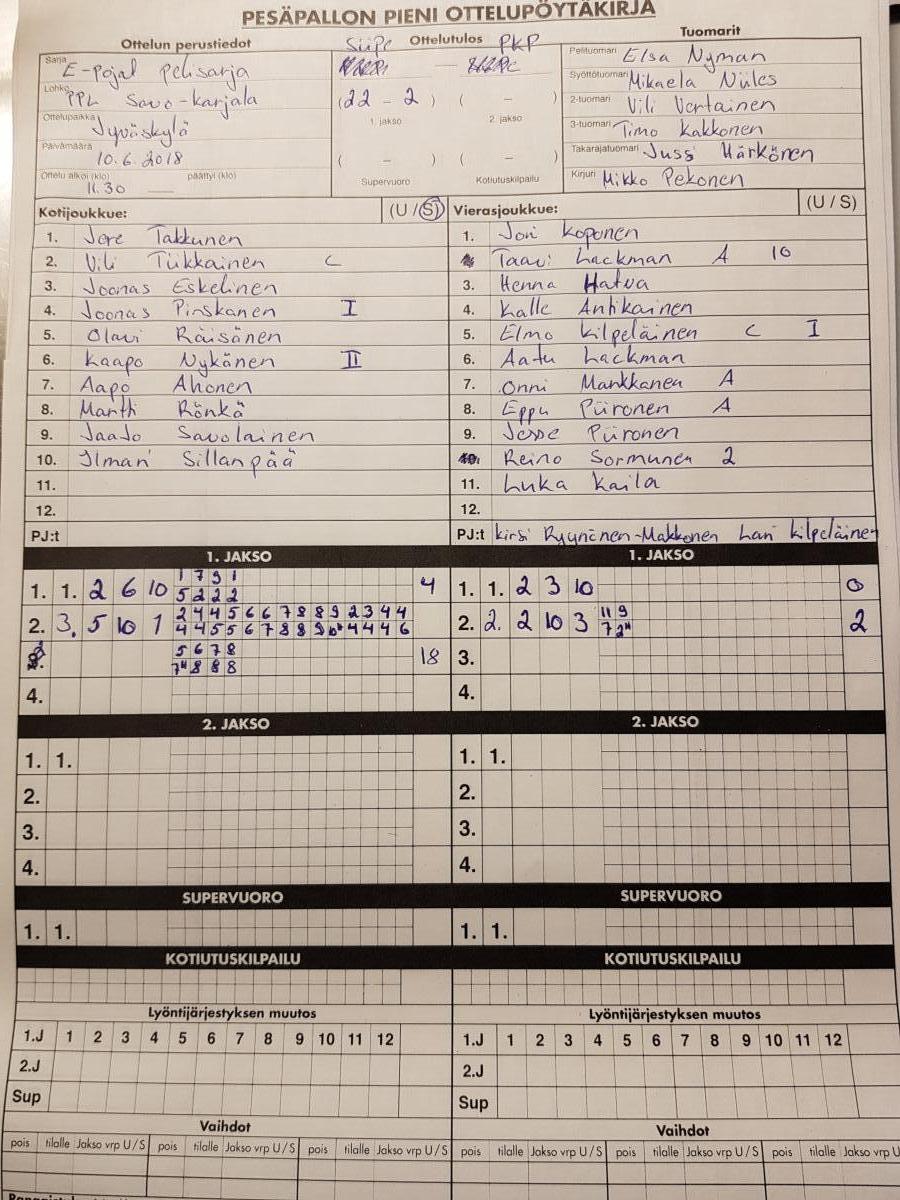 PESÄPALLON PIENI OTTELUPÖYTÄKIRJA
Ottelun perustiedot
Sarja E-Pojat Pelisarja
Lohko PPL Savo-karjala
Ottelupaikka Jyväskylä
Päivämäärä 10.6.2018
Ottelu alkoi (klo) 11.30 päättyi (klo)
Ottelutulos
SiiPe PKP
(22 - 2) ( - )
1. jakso 2. jakso
( - ) ( - )
Supervuoro Kotiutuskilpailu
Tuomarit
Pelituomari Elsa Nyman
Syöttötuomari Mikaela Niiles
2-tuomari Vili Vertainen
3-tuomari Timo Kakkonen
Takarajatuomari Jussi Härkönen
Kirjuri Mikko Pekonen
Kotijoukkue: (U / S)
1. Jere Takkunen
2. Vili Tiikkainen C
3. Joonas Eskelinen
4. Joonas Pinskanen I
5. Olavi Räisänen
6. Kaapo Nykänen II
7. Aapo Ahonen
8. Martti Rönkä
9. Jaajo Savolainen
10. Ilmari Sillanpää
11.
12.
PJ:t
Vierasjoukkue: (U / S)
1. Joni Koponen
Taavi Lackman A 10
3. Henna Hatva
4. Kalle Antikainen
5. Elmo Kilpeläinen C I
6. Aatu Lackman
7. Onni Mankkanen A
8. Eppu Piironen A
9. Jesse Piironen
10. Reino Sormunen 2
11. Luka Kaila
12.
PJ:t Kirsi Ryynänen-Makkonen Lari Kilpeläinen
1. JAKSO
1. 1. 2 6 10 1 7 9 1 4
5 2 2 2
2. 3. 5 10 1 2 4 4 5 6 6 7 8 8 9 2 3 4 4
4 4 5 5 6 7 8 8 9 10 4 4 4 6
5 6 7 8 18
7 8 8 8
4.
1. JAKSO
1. 1. 2 3 10 0
2. 2. 2 10 3 11 9 2
7 2
3.
4.
2. JAKSO
1. 1.
2.
3.
4.
2. JAKSO
1. 1.
2.
3.
4.
SUPERVUORO
1. 1.
SUPERVUORO
1. 1.
KOTIUTUSKILPAILU
KOTIUTUSKILPAILU
Lyöntijärjestyksen muutos
1.J 1 2 3 4 5 6 7 8 9 10 11 12
2.J
Sup
Lyöntijärjestyksen muutos
1.J 1 2 3 4 5 6 7 8 9 10 11 12
2.J
Sup
Vaihdot
pois tilalle Jakso vrp U / S pois tilalle Jakso vrp U / S pois tilalle Jakso vrp U / S
Vaihdot
pois tilalle Jakso vrp U / S pois tilalle Jakso vrp U / S pois tilalle Jakso vrp U